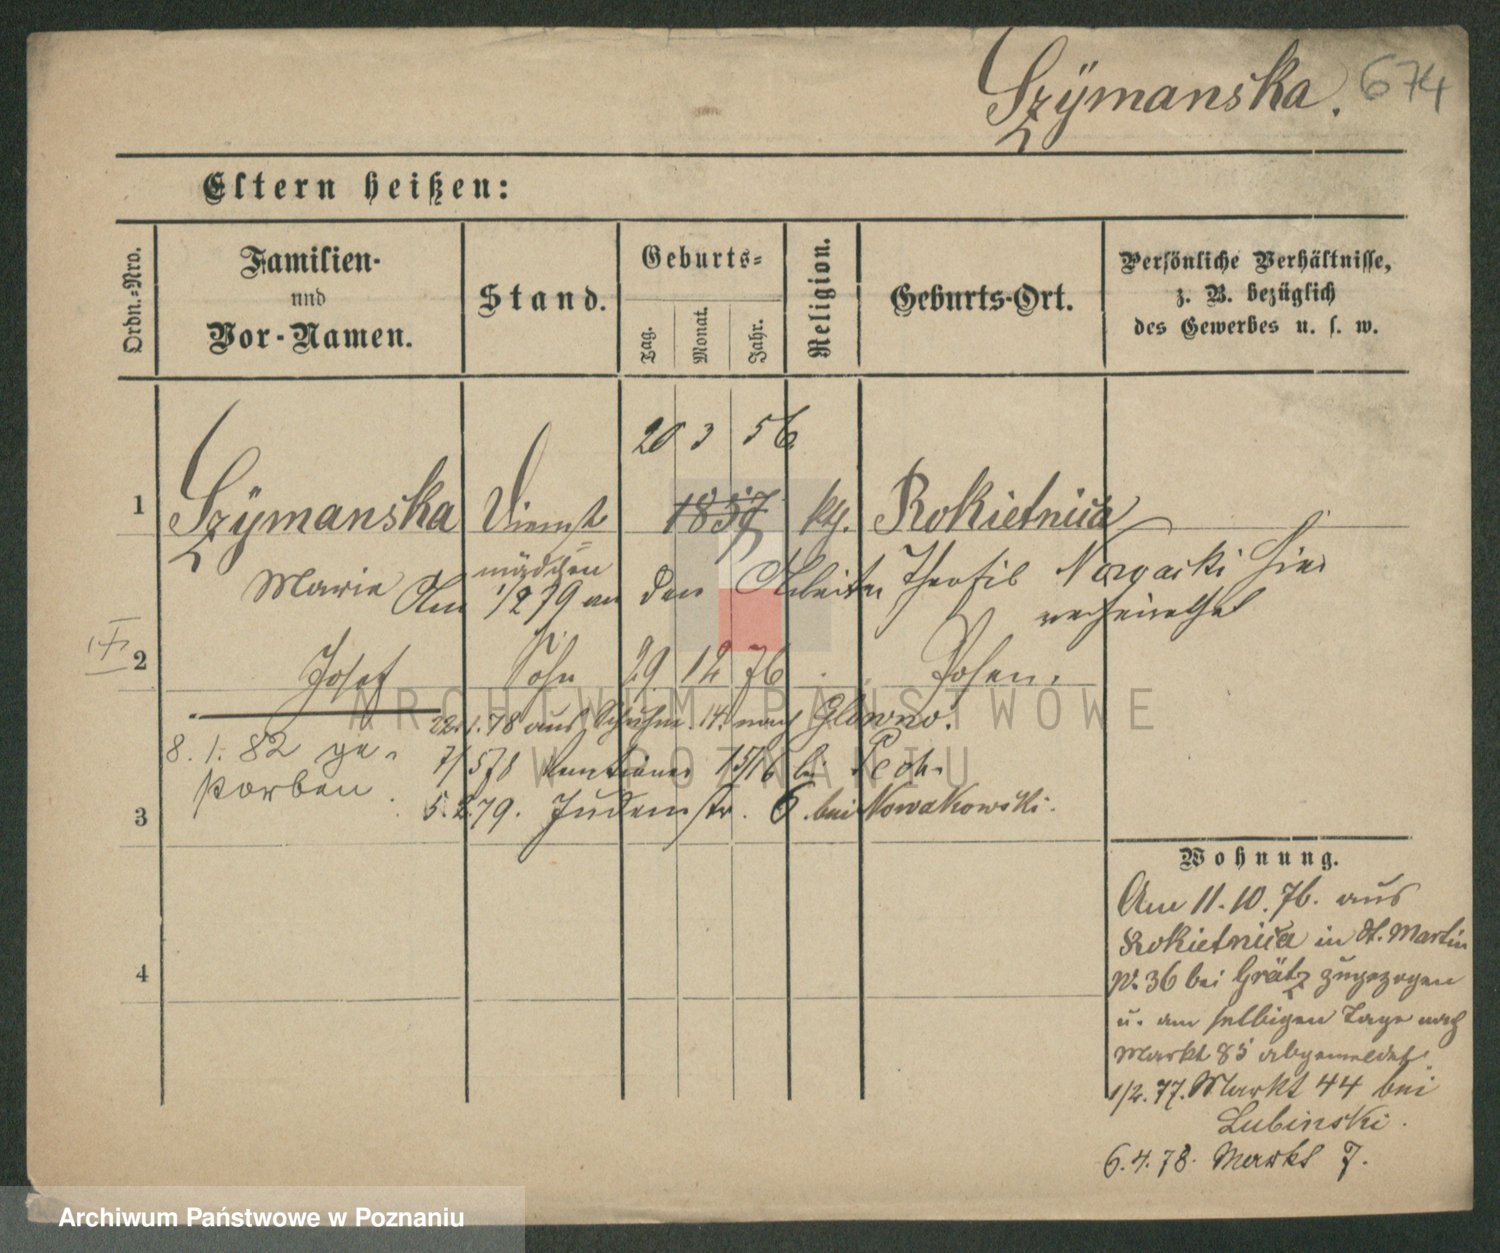 Szÿmanska. 674
Eltern heißen:
Ordn.-Nro.
Familien-
und
Vor-Namen.
Stand.
Geburts-
Tag.
Monat.
Jahr.
Religion.
Geburts-Ort.
Persönliche Verhältnisse,
z. B. bezüglich
des Gewerbes u. s. w.
20 3 56
1 Szÿmanska Dienst= 1857 kth. Rokietnica
mädchen
Marie Am 1/2 79 an den Arbeiter Theofil hier
verheirathet
2 Josef Sohn 29 12 76 Posen.
22.1.78 aus 14. nach Glowno.
8. 1. 82 ge-
storben
7/5 78 15/16 bei
3 5. 79. Judenstr. 6 bei Nowakowski.
4
Wohnung.
Am 11.10.76. aus
Rokietnica in St. Martin
No. 36 bei Grätz zugezogen
u. am selbigen Tage nach
Markt 85 abgemeldet.
1/2. 77. Markt 44 bei
Lubinski.
6.4.78. Markt 7.
ARCHIWUM PAŃSTWOWE
W POZNANIU
Archiwum Państwowe w Poznaniu